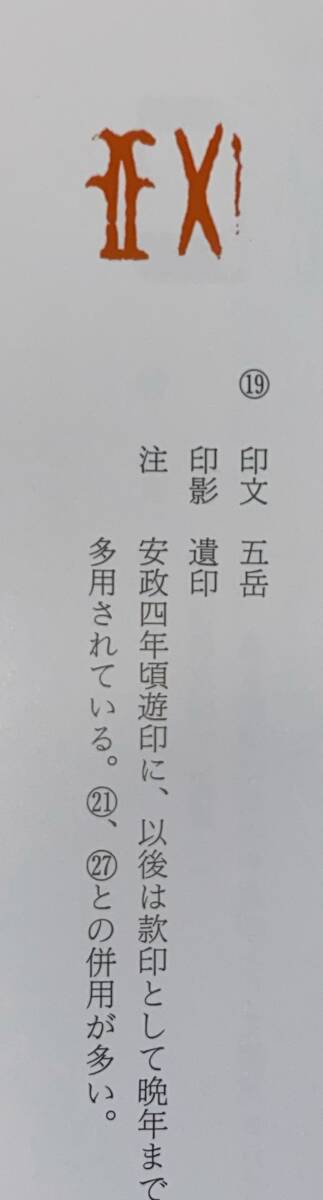 ⑲ 印文 五岳
印影 遺印
注 安政四年頃遊印に、以後は款印として晩年まで
多用されている。㉑、㉗との併用が多い。